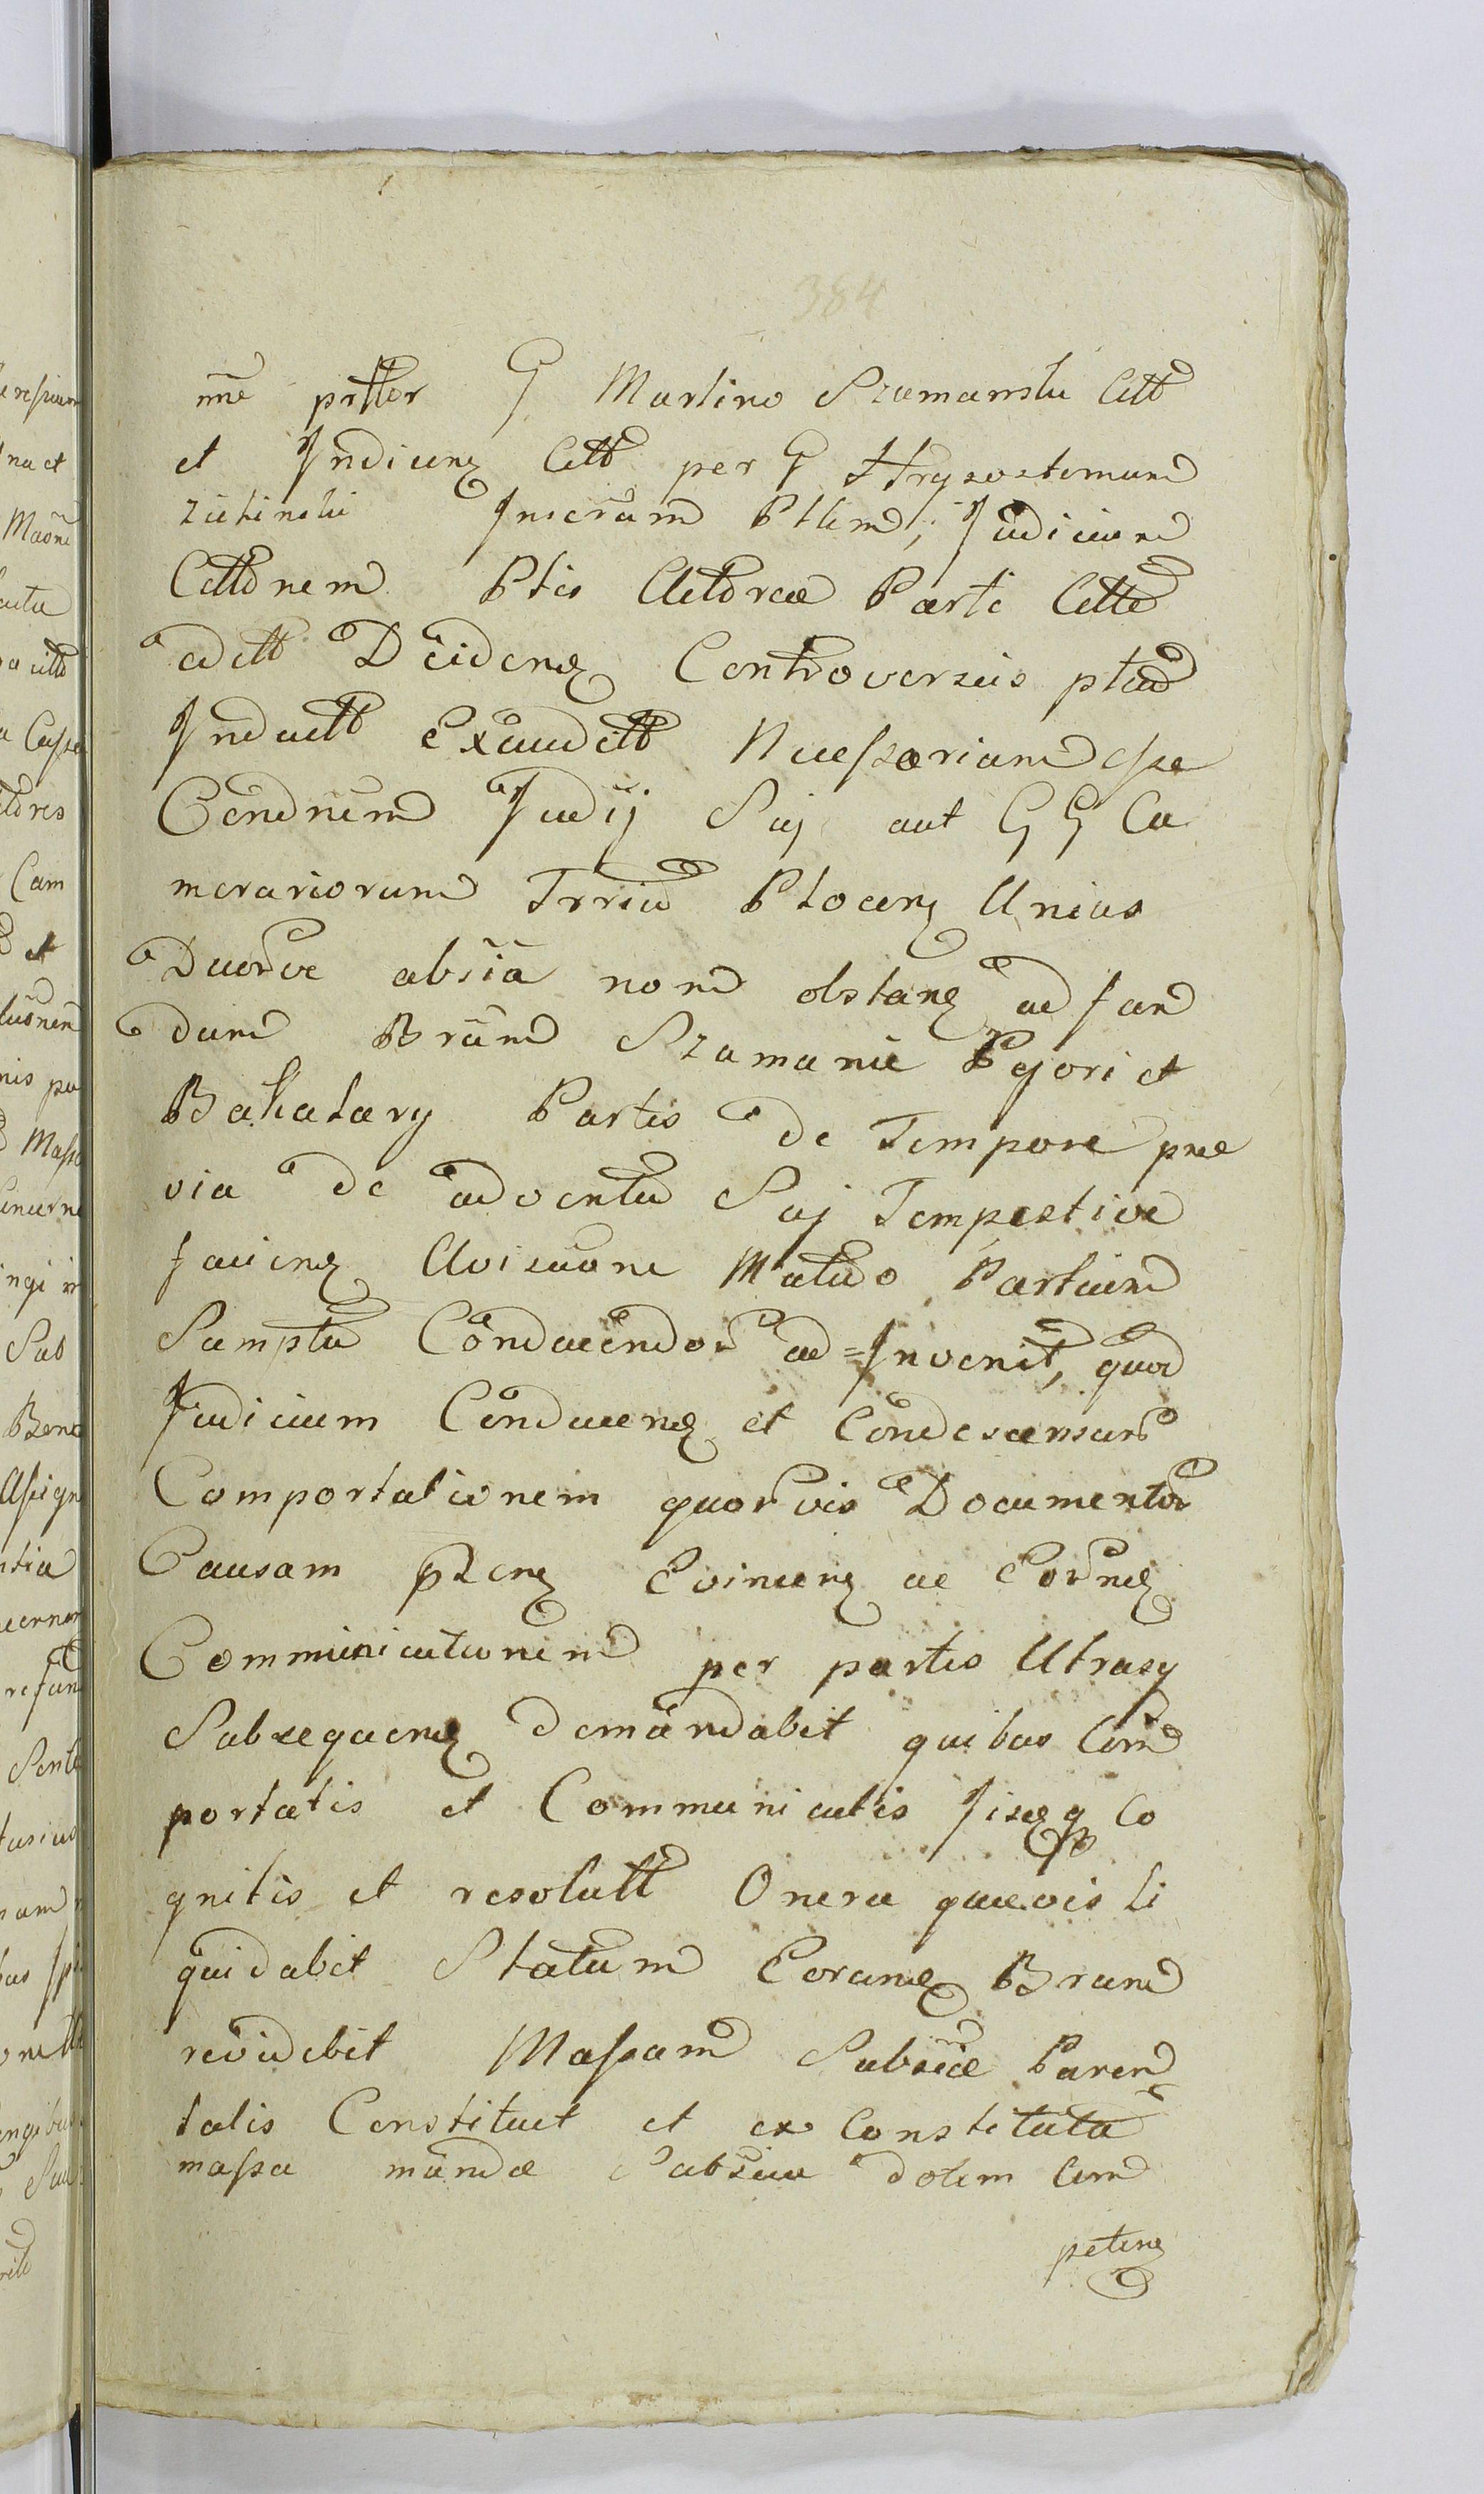 384
mẽ prttor G Martino Szamanski Citt
et Judicenz Citt per G Hrysostomum
Zielinski Juscrãm Ptlem, Judicium
Cittõnem Ptis Actoreæ Parti Citte
aditt Decidenz Controversiis ptium
Inductt Exaudett Necessarium esse
Condñem Judÿ Sui aut G G Ca
merariorum Trriũ Plocenz Unius
Duorve absĩa non obstanz ad fun
dum Brũm Szamanie Pejori et
Bakatary Partis de Tempore præ
via de adventu Sui Tempestive
facienz Avisaõne Mutuo Partium
Sumptu Conducendor ad=Invenit, quod
Judicium Conducenz et Condescensur
Comportationem quorvis Documentor
Causam pzenz Evincenz ac Eornz
Communicationem per partes Utrasq
Subsequenz demandabit quibus Com
portatis et Communicatis Jisqz Co
gnitis et resolutt Onera quævis li
quidabit Statum Eorunz Brum
revidebit Massam Subsiæ Paren
talis Constituet et ex Constituta
massa mandæ Subsiæ dotem Com
petenz